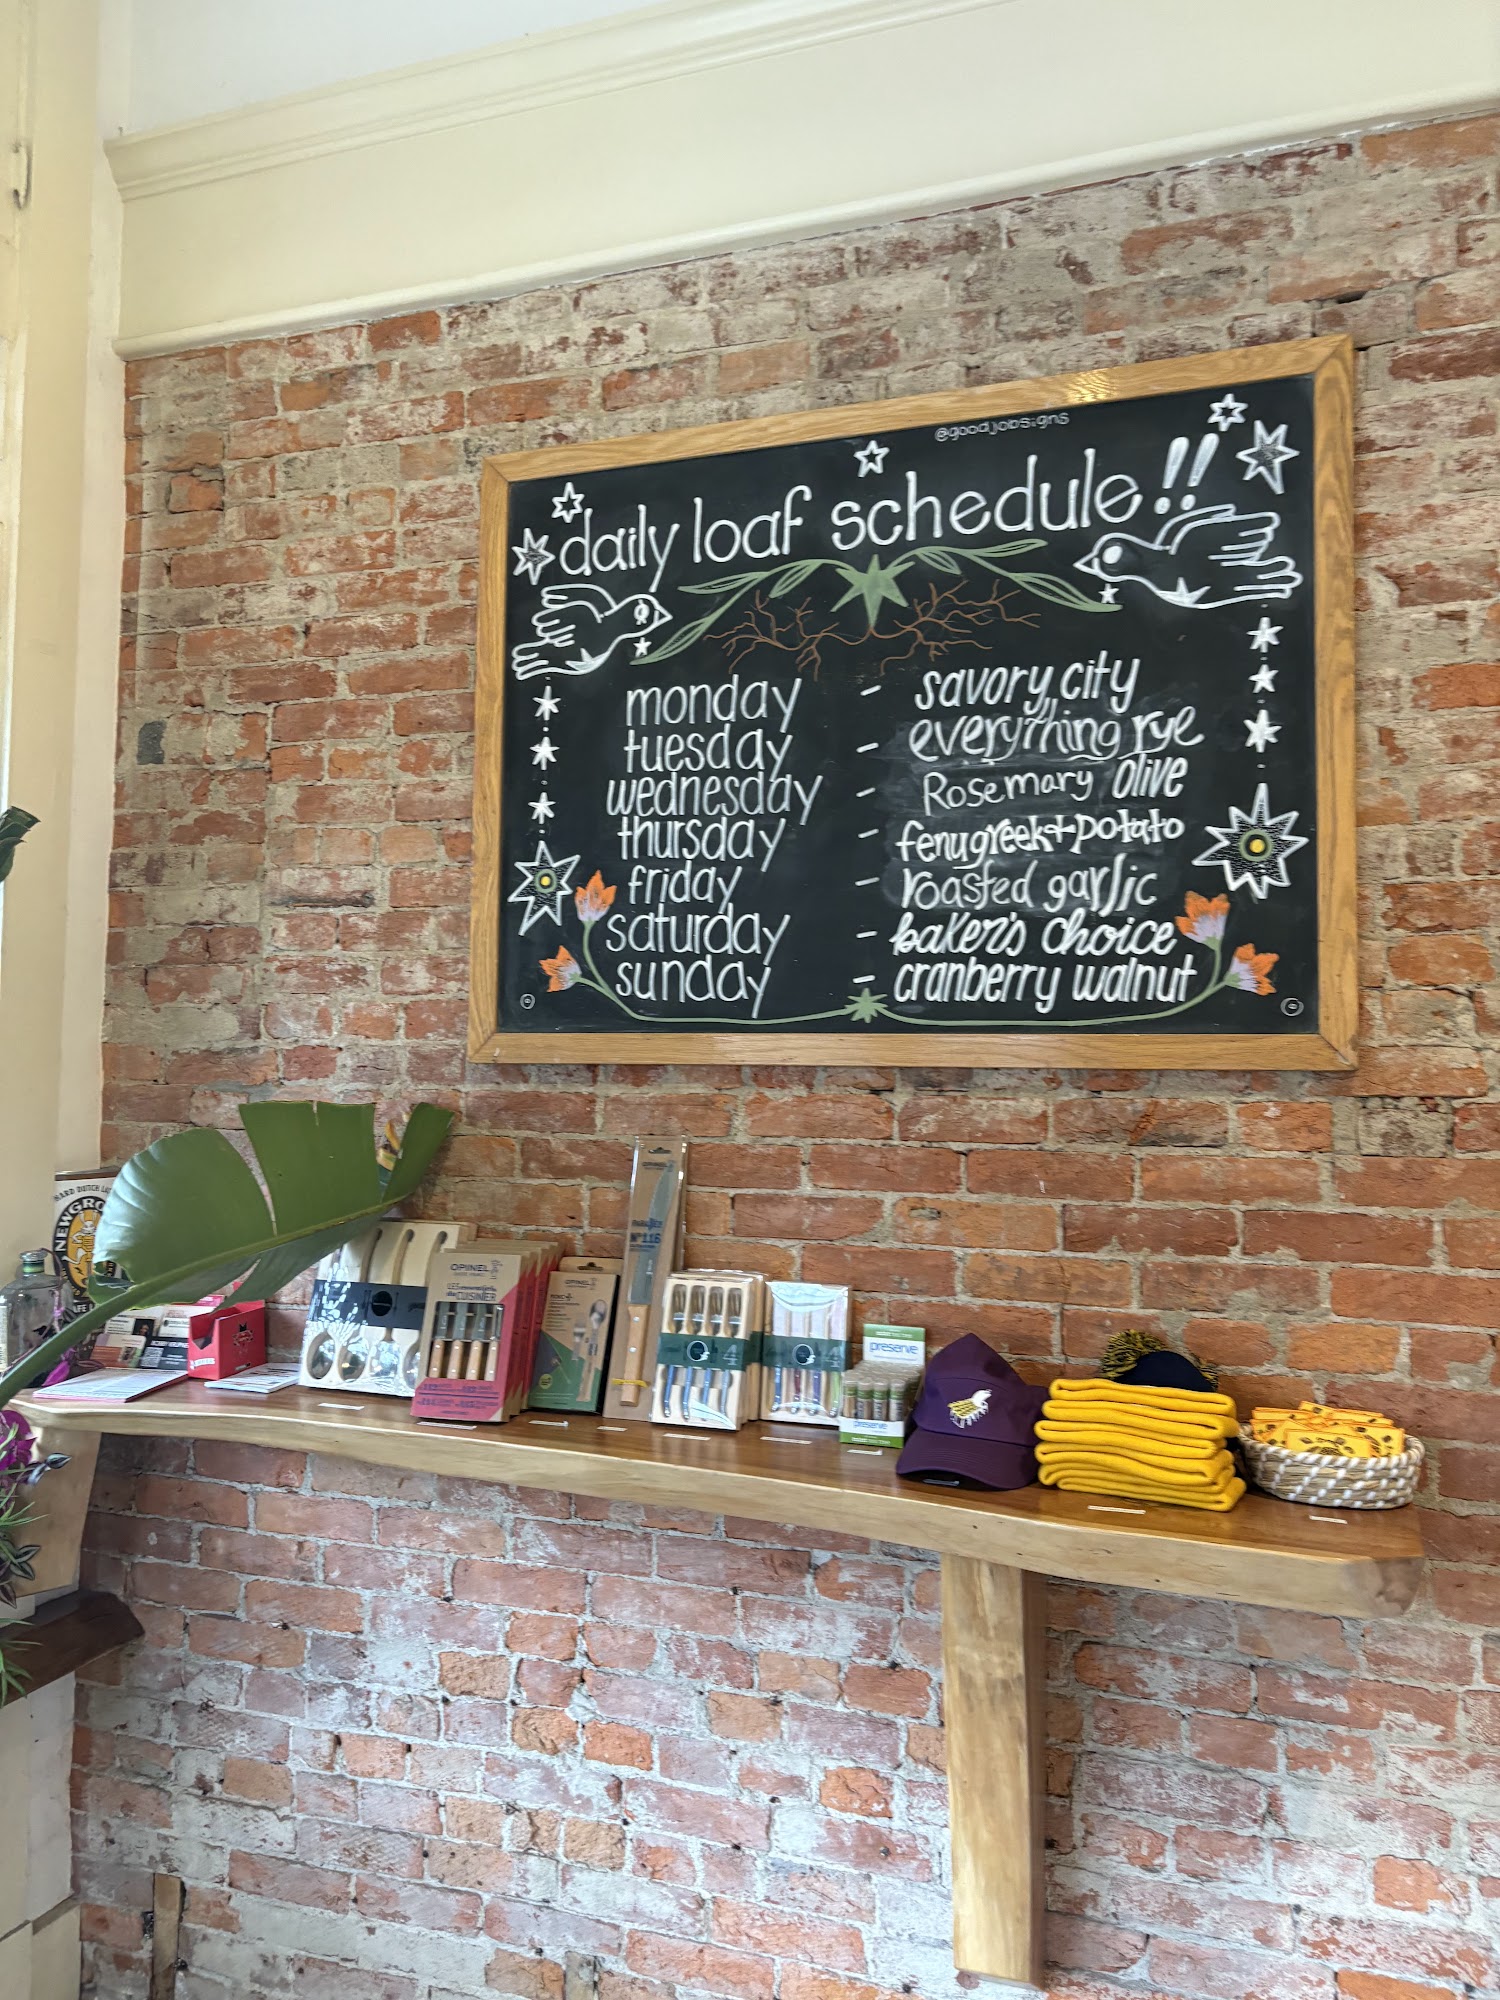 @goodjobsigns
daily loaf schedule!!
monday - savory city
tuesday - everything rye
wednesday - Rosemary olive
thursday - fenugreek + potato
friday - roasted garlic
saturday - baker's choice
sunday - cranberry walnut
HARD DUTCH
NEWGRO
OPINEL
PARALLÈLE
N°116
OPINEL
CUISINIER
4
4
preserve
preserve